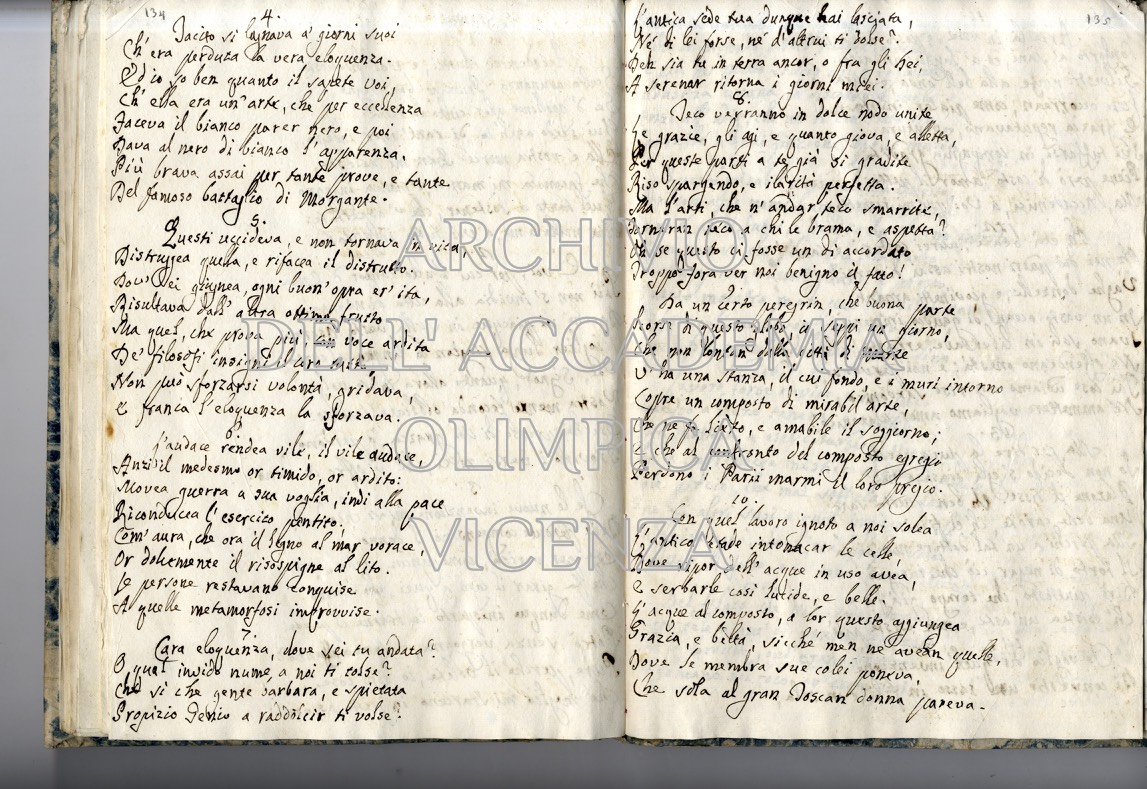 134
4.
Tacito si lagnava a' giorni suoi
Ch' era perduta la vera eloquenza.
Ed io so ben quanto il sapete voi,
Ch' ella era un' arte, che per eccellenza
Faceva il bianco parer nero, e poi
Dava al nero di bianco l' apparenza.
Più brava assai per tante prove, e tante
Del famoso battaglio di Morgante.
5.
Questi uccideva, e non tornava in vita,
Distruggea quella, e rifacea il distrutto.
Dov' lei giugnea, ogni buon' opra er' ita,
Risultava dall' altra ottimo frutto
Ma quel, che prova più, con voce ardita
De' filosofi insigni il coro tutto,
Non può sforzarsi volontà, gridava,
E franca l' eloquenza la sforzava.
6.
L' audace rendea vile, il vile audace,
Anzi il medesmo or timido, or ardito:
Movea guerra a sua voglia, indi alla pace
Riconducea l' esercito pentito.
Com' aura, che ora il legno al mar vorace,
Or dolcemente il risospigne al lito.
Le persone restavano conquise
A quelle metamorfosi improvvise.
7.
Cara eloquenza, dove sei tu andata?
O qual invido nume a noi ti tolse?
Che si che gente barbara, e spietata
Propizio Genio a raddolcir ti volse?
135
L' antica sede tua dunque hai lasciata,
Né di lei forse, né d' altrui ti dolse?
Deh sia tu in terra ancor, o fra gli Dei,
A serenar ritorna i giorni miei.
8.
Teco verranno in dolce nodo unite
Le grazie, gli agi, e quanto giova, e alletta,
Per queste parti a te già sì gradite
Riso spargendo, e ilarità perfetta.
Ma l' arti, che n' andar teco smarrite,
Torneran teco a chi le brama, e aspetta?
Oh se questo ci fosse un dì accordato
Troppo fora ver noi benigno il fato!
9.
Da un certo peregrin, che buona parte
Scorse di questo globo, io seppi un giorno,
Che non lontan dalla città di
V' ha una stanza, il cui fondo, e i muri intorno
Copre un composto di mirabil arte,
Che ne fa lieto, e amabile il soggiorno;
E che al confronto del composto egregio
Perdono i Parii marmi il loro pregio.
10.
Con quel lavoro ignoto a noi solea
L' antico etade intonacar le celle,
Dove sipor dell' acque in uso avea,
E serbarle così lucide, e belle.
L' acque al composto, a lor questo aggiungea
Grazia, e beltà, sicché men ne avean quelle,
Dove le membra sue colei poneva,
Che sola al gran Toscan donna pareva.
ARCHIVIO
DELL' ACCADEMIA
OLIMPICA
VICENZA